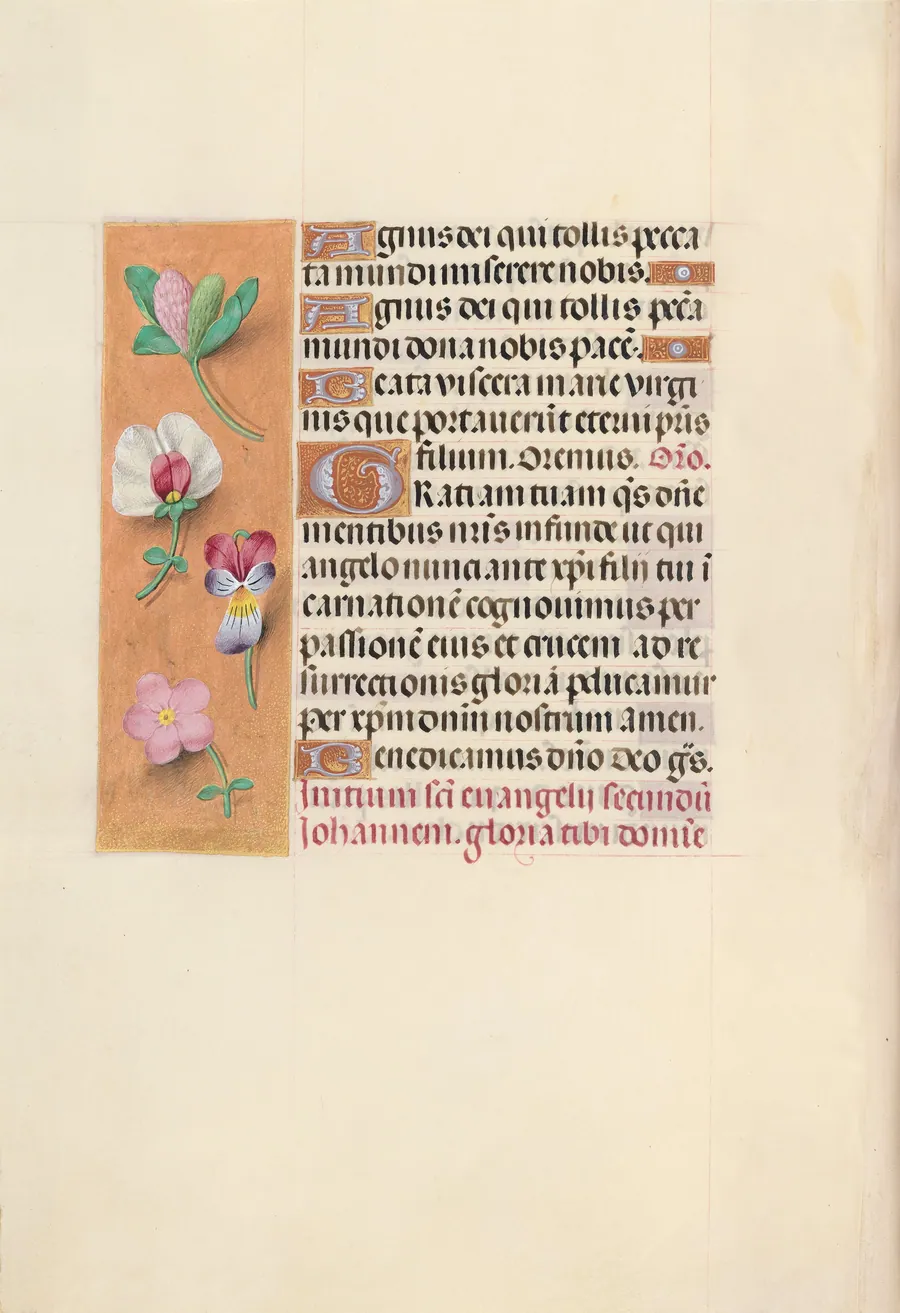 Agnus dei qui tollis pecca
ta mundi miserere nobis.
Agnus dei qui tollis pec̃a
mundi dona nobis pacē.
Beata viscera marie virgi
nis que portauerūt eterni pr̃is
filium. Oremus. Or̃o.
GRatiam tuam q̃s dñe
mentibus nr̃is infunde ut qui
angelo nunciante xp̃i filij tui ī
carnationē cognouimus per
passionē eius et crucem ad re
surrectionis gloriā pducamur
per xp̃m dñm nostrum amen.
Benedicamus dño Deo gr̃s.
Initium sc̃i euangelij secundū
Johannem. gloria tibi domīe